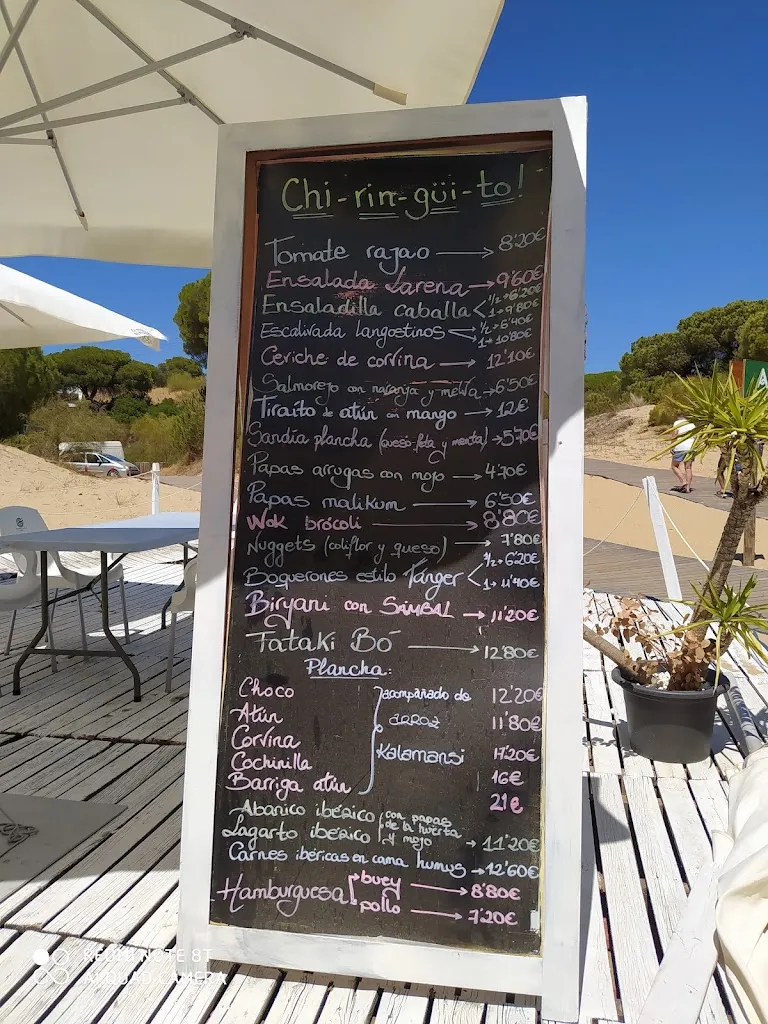 Chi-rin-güi-to!
Tomate rajao → 8'20€
Ensalada Larena → 9'60€
Ensaladilla caballa < 1/2→6'20€
1→9'80€
Escalivada langostinos < 1/2→6'40€
1→10'80€
Ceviche de corvina → 12'10€
Salmorejo con naranja y melva → 6'50€
Tiraito de atún con mango → 12€
Sandía plancha (queso feta y menta) → 5'70€
Papas arrugas con mojo → 4'70€
Papas malikum → 6'50€
Wok brócoli → 8'80€
Nuggets (coliflor y queso) → 7'80€
Boquerones estilo Tánger < 1/2→6'20€
1→11'40€
Biryani con SAMBAL → 11'20€
Tataki Bo → 12'80€
Plancha:
Choco 12'20€
Atún 11'80€
Corvina 17'20€
Cochinilla 16€
Barriga atún 21€
acompañado de
arroz
Kalamansi
Abanico ibérico
Lagarto ibérico
con papas
de la huerta
y mojo → 11'20€
Carnes ibéricas en cama humus → 12'60€
Hamburguesa
buey → 8'80€
pollo → 7'20€
REDMI NOTE 8T
AI QUAD CAMERA
A